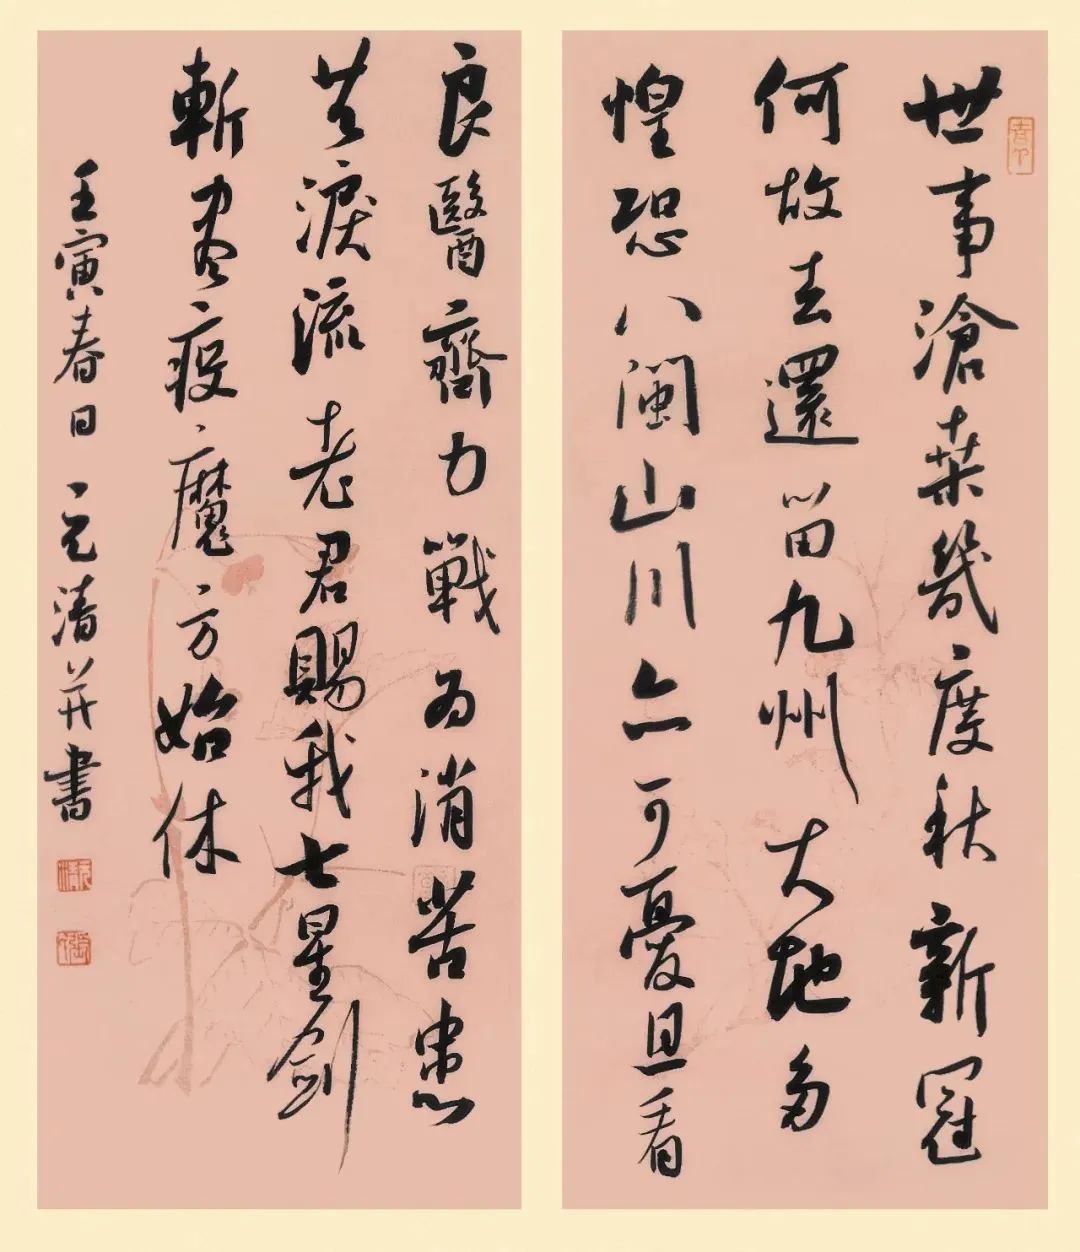 世事滄桑幾度秋新冠
何故去還留九州大地多
惶恐八閩山川亦可憂且看
良醫齊力戰為消苦患
共淚流老君賜我七星劍
斬盡疫魔方始休
壬寅春日元清并書